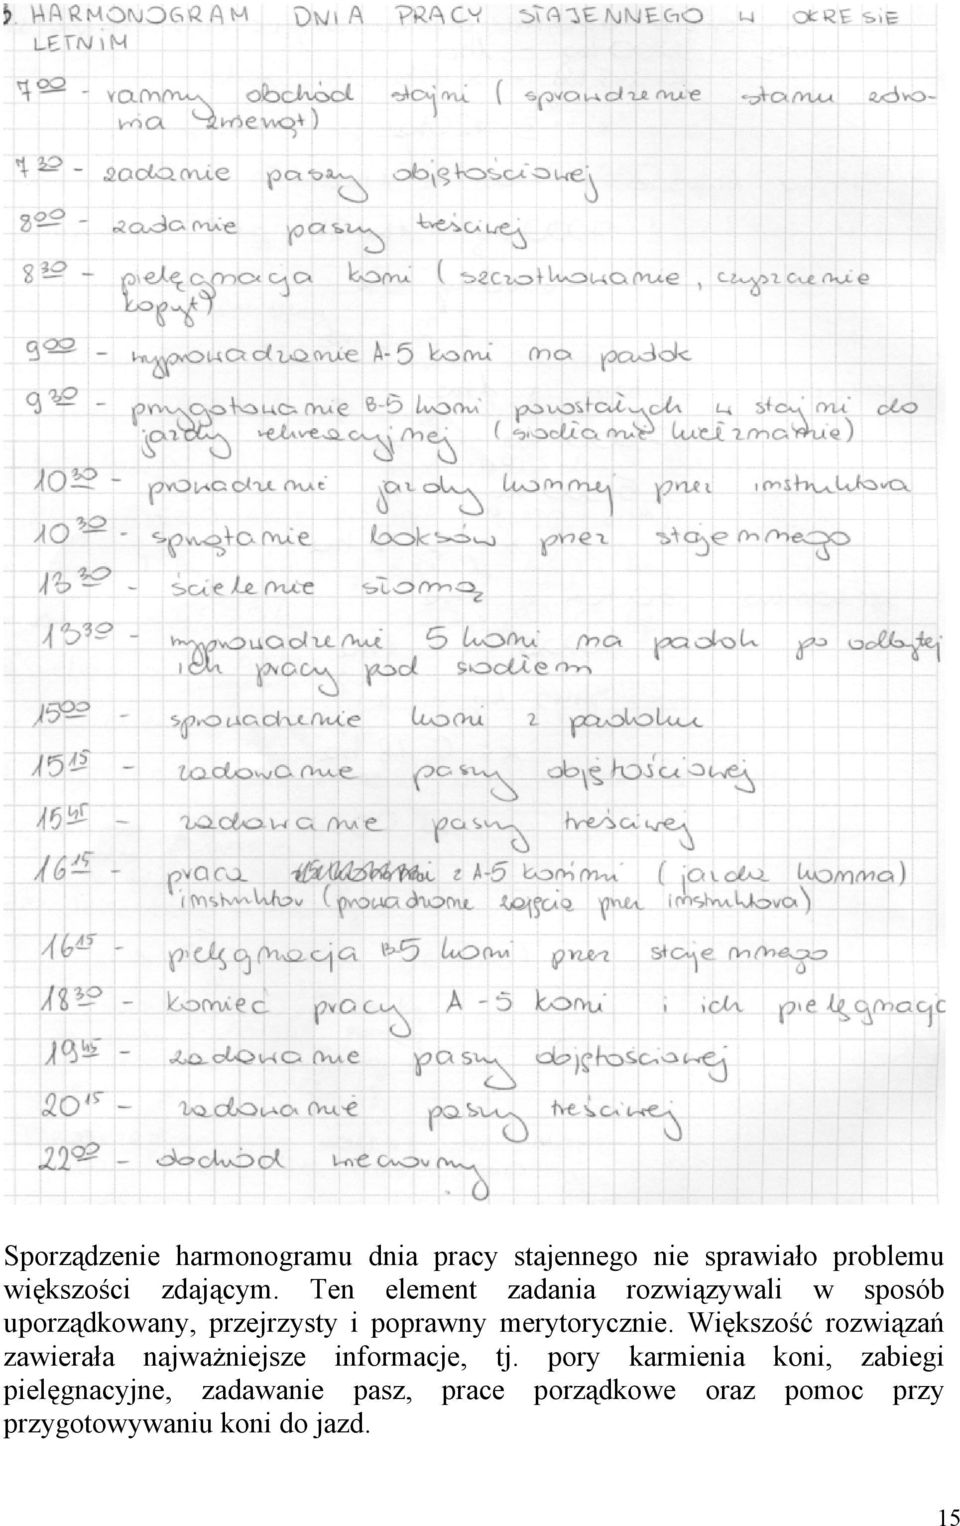 5. HARMONOGRAM DNIA PRACY STAJENNEGO W OKRESIE
LETNIM
7 00 - ranny obchód stajni (sprawdzenie stanu zdro-
wia zwierząt)
7 30 - zadanie paszy objętościowej
8 00 - zadanie paszy treściwej
8 30 - pielęgnacja koni (szczotkowanie, czyszczenie
kopyt)
9 00 - wyprowadzanie A-5 koni na padok
9 30 - przygotowanie B-5 koni pozostałych w stajni do
jazdy rekreacyjnej (siodłanie kiełznanie)
10 30 - prowadzenie jazdy konnej przez instruktora
10 30 - sprzątanie boksów przez stajennego
13 30 - ścielenie słomą
13 30 - wyprowadzenie 5 koni na padok po odbytej
ich pracy pod siodłem
15 00 - sprowadzenie koni z padoku
15 15 - zadowanie paszy objętościowej
15 45 - zadowanie paszy treściwej
16 15 - praca z A-5 końmi (jazda konna)
instruktor (prowadzone zajęcia przez instruktora)
16 15 - pielęgnacja B-5 koni przez stajennego
18 30 - koniec pracy A-5 koni i ich pielęgnacja
19 45 - zadowanie paszy objętościowej
20 15 - zadowanie paszy treściwej
22 00 - obchód wieczorny
Sporządzenie harmonogramu dnia pracy stajennego nie sprawiało problemu
większości zdającym. Ten element zadania rozwiązywali w sposób
uporządkowany, przejrzysty i poprawny merytorycznie. Większość rozwiązań
zawierała najważniejsze informacje, tj. pory karmienia koni, zabiegi
pielęgnacyjne, zadawanie pasz, prace porządkowe oraz pomoc przy
przygotowywaniu koni do jazd.
15